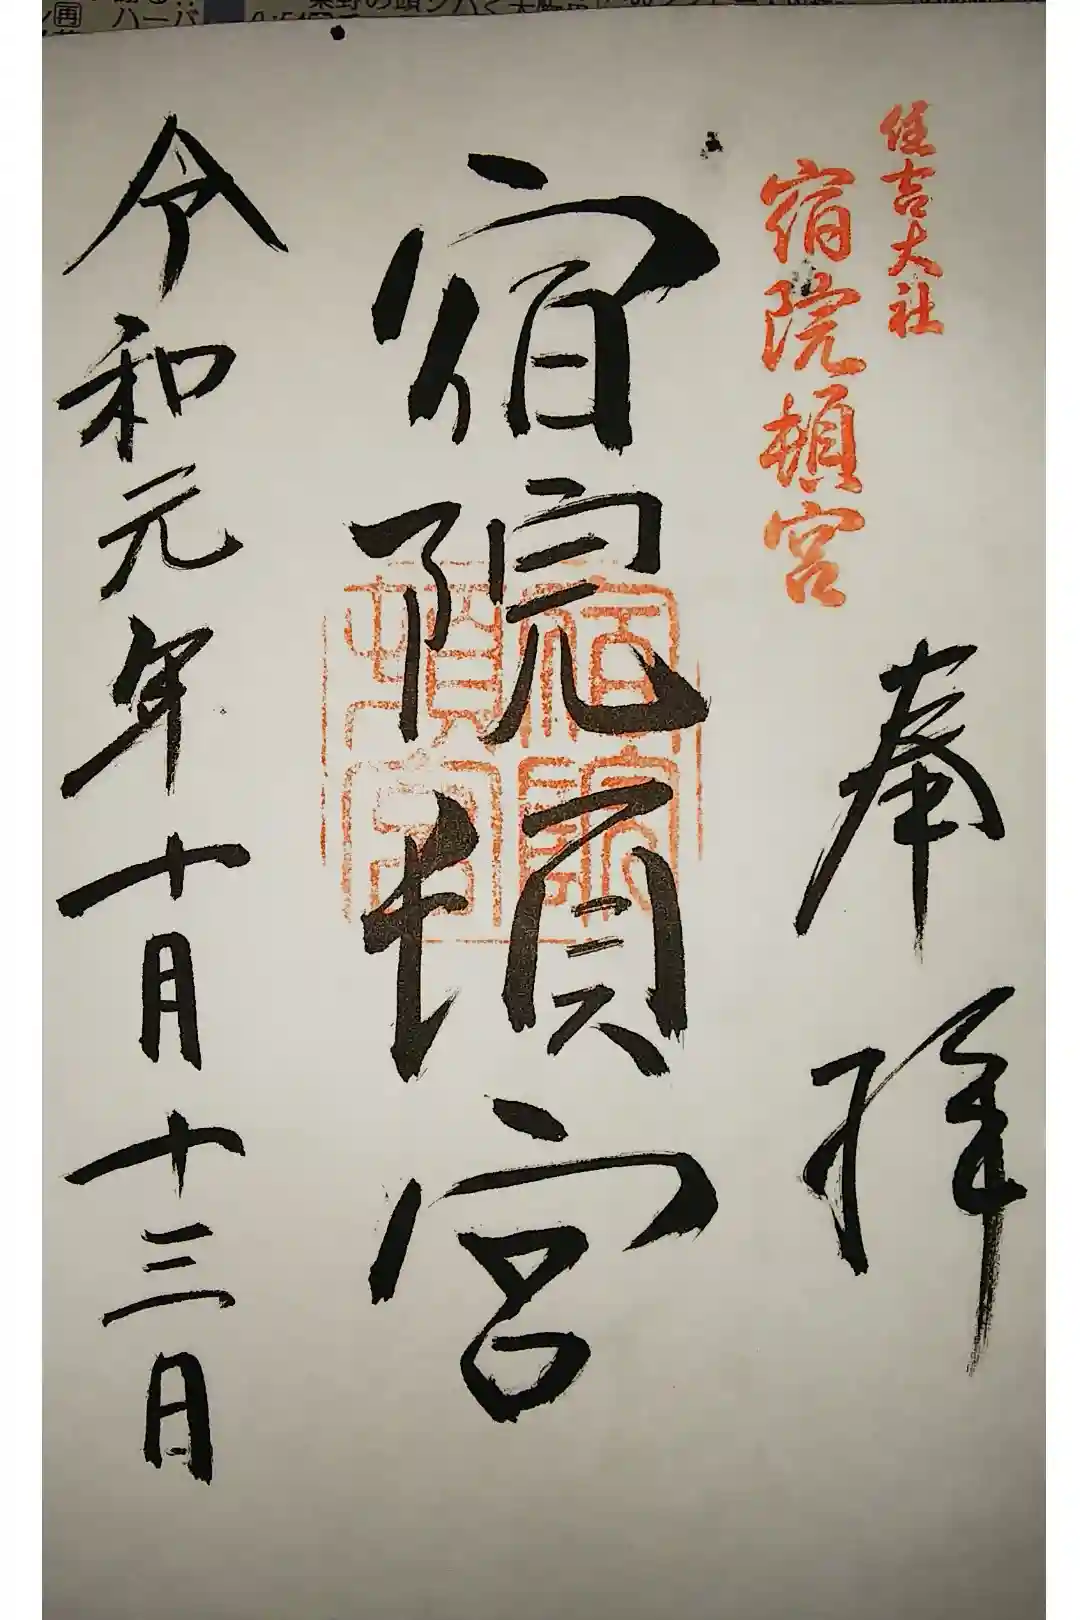 住吉大社
宿院頓宮
奉拝
宿院頓宮
宿院頓宮
令和元年十月十三日